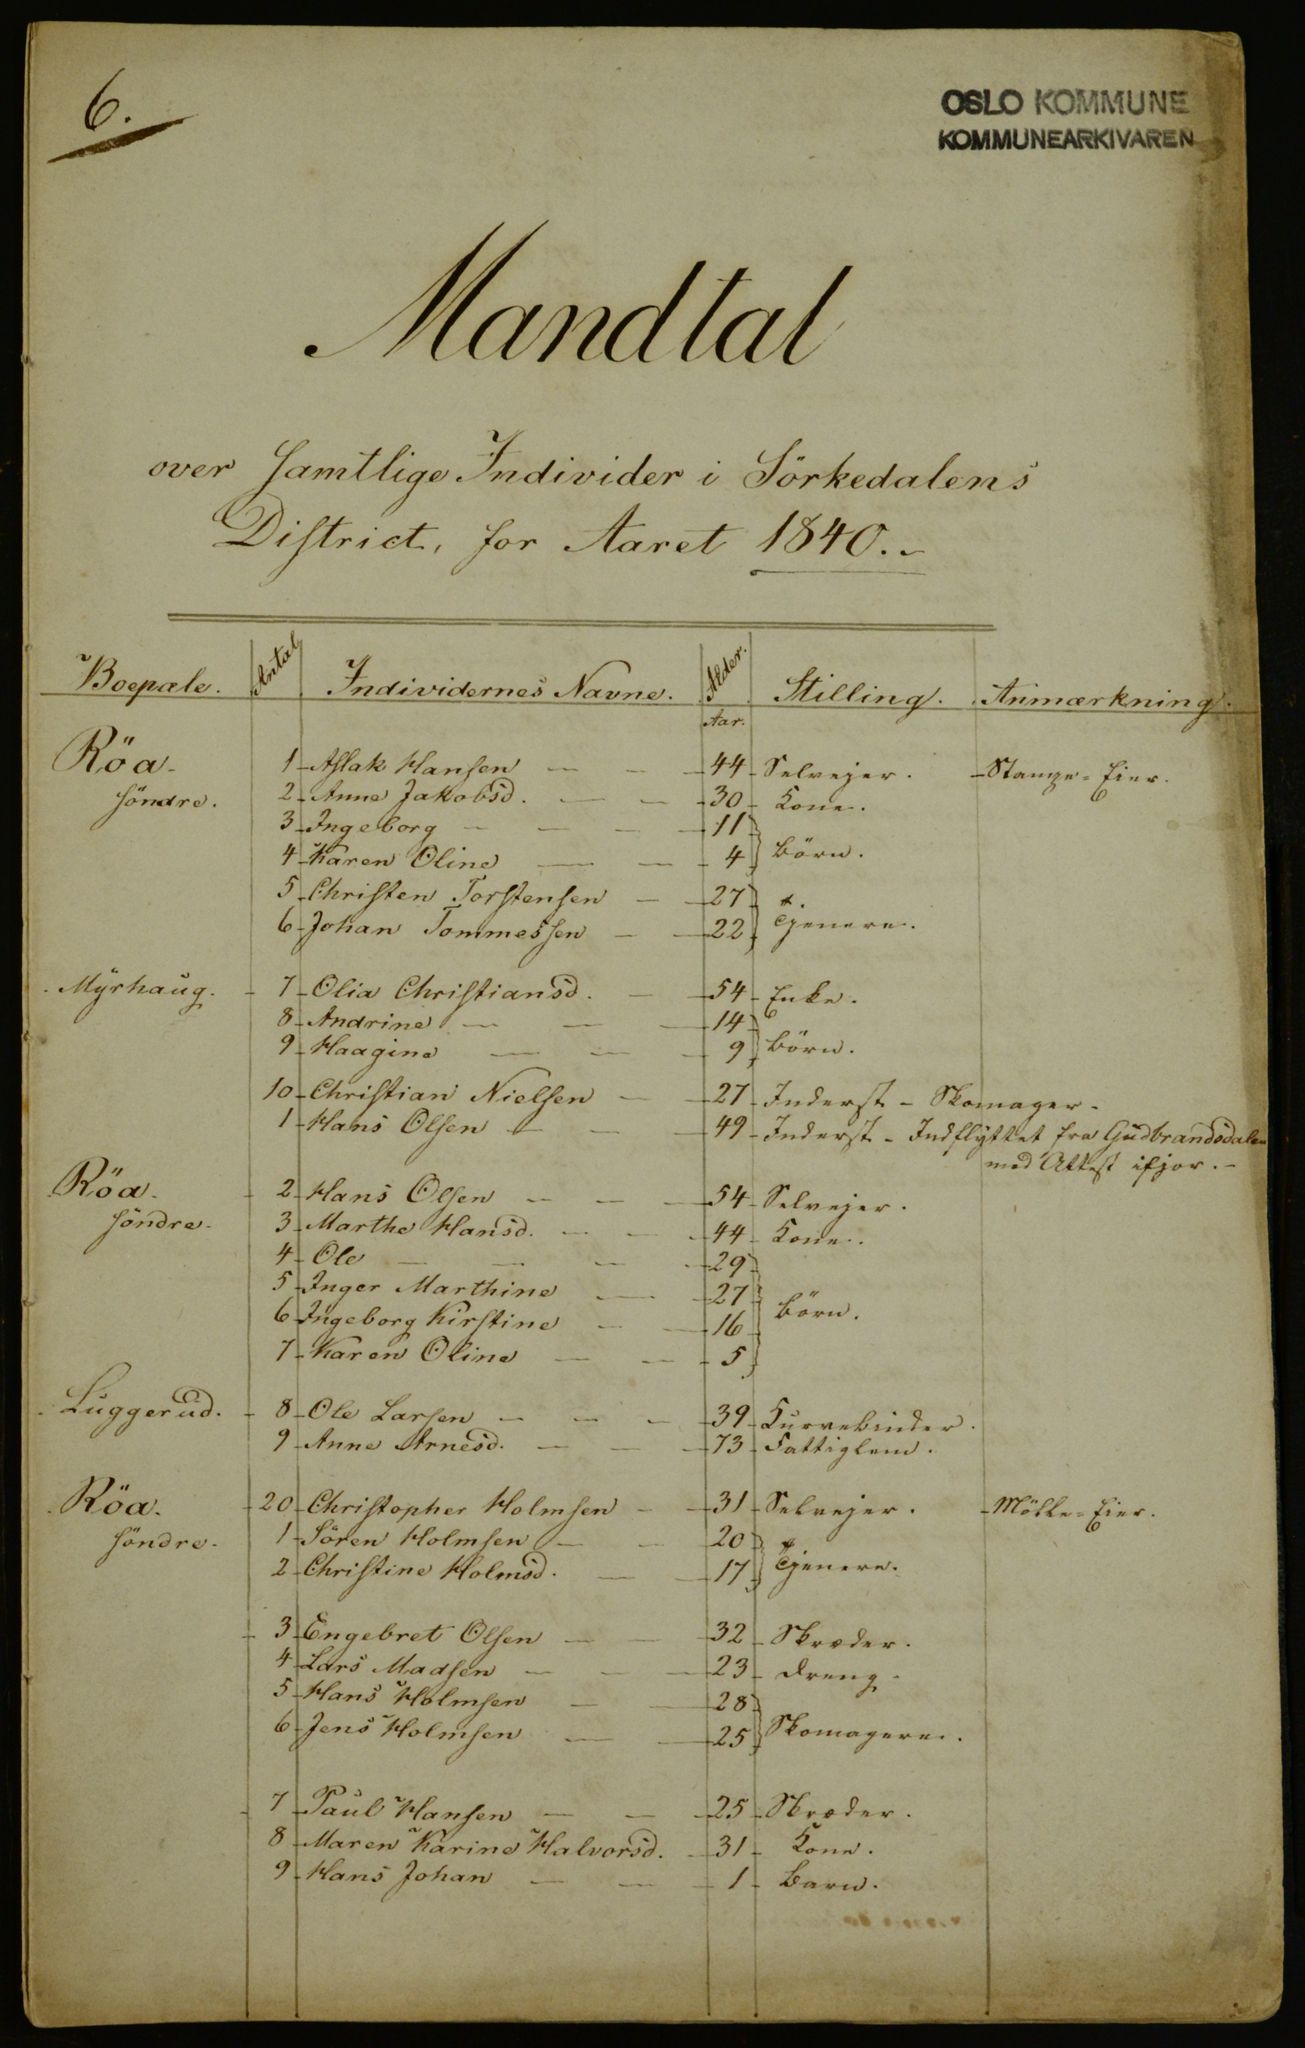 6.
OSLO KOMMUNE
KOMMUNEARKIVAREN
Mandtal
over samtlige Individer i Sörkedalens
District, for Aaret 1840.
Boepæle. Antal Individernes Navne. Alder. Stilling. Anmærkning.
Aar.
Röa 1 Aslak Hansen 44 Selvejer. Stampe-Eier.
söndre. 2 Anne Jakobsd. 30 Kone.
3 Ingeborg 11
4 Karen Oline 4 Börn.
5 Christen Torstensen 27
6 Johan Tommessen 22 Tjenere.
Myrhaug. 7 Olia Christiansd. 54 Enke.
8 Andrine 14
9 Haagine 9 Börn.
10 Christian Nielsen 27 Inderst - Skomager.
1 Hans Olsen 49 Inderst - Indflyttet fra Gudbrandsdalen
med Attest ifjor.
Röa 2 Hans Olsen 54 Selvejer.
söndre. 3 Marthe Hansd. 44 Kone.
4 Ole 29
5 Inger Marthine 27
6 Ingeborg Kirstine 16 Börn.
7 Karen Oline 5
Luggerud. 8 Ole Larsen 39 Kurvebinder.
9 Anne Arnesd. 73 Fattiglem.
Röa. 20 Christopher Holmsen 31 Selvejer. Mölle-Eier.
söndre. 1 Sören Holmsen 20
2 Christine Holmsd. 17 Tjenere.
3 Engebret Olsen 32 Skræder.
4 Lars Madsen 23 Dreng.
5 Hans Holmsen 28
6 Jens Holmsen 25 Skomagere.
7 Paul Hansen 25 Skræder.
8 Maren Karine Halvorsd. 31 Kone.
9 Hans Johan 1 Barn.